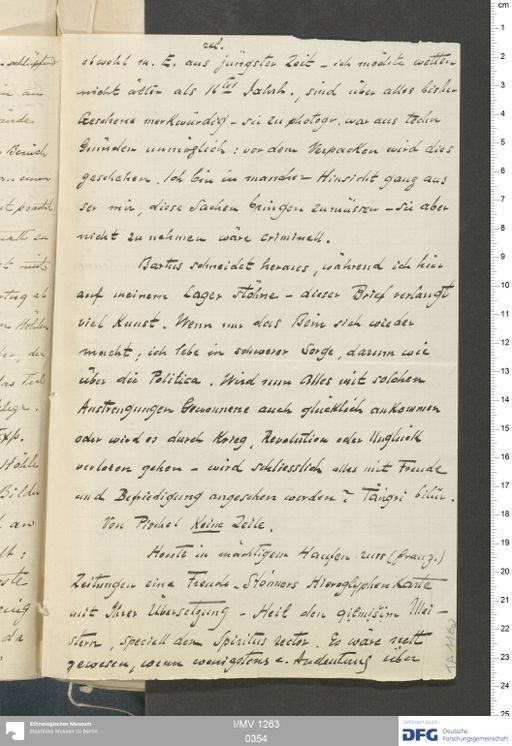 rel.
obwohl m. E. aus jüngster Zeit – ich möchte wetten
nicht älter als 16tes Jahrh., sind über alles bisher
Gesehene merkwürdig – sie zu photogr. war aus techn
Gründen unmöglich: vor dem Verpacken wird dies
geschehen. Ich bin in mancher Hinsicht ganz aus
ser mir, diese Sachen bringen zu müssen – sie aber
nicht zu nehmen wäre criminell.
Bartus schneidet heraus, während ich hier
auf meinem Lager stöhne – dieser Brief verlangt
viel Kunst. Wenn nur das Bein sich wieder
macht, ich lebe in schwerer Sorge, darum wie
über die Politica. Wird nun alles mit solchen
Anstrengungen Gewonnene auch glücklich ankommen
oder wird es durch Krieg, Revolution oder Unglück
verloren gehen – wird schliesslich alles mit Freude
und Befriedigung angesehen werden? Tängri bilür.
Von Pischel Keine Zeile.
Heute in mächtigem Haufen russ (franz.)
Zeitungen eine Freude. Stönners Hieroglyphen Karte
mit Ihrer Übersetzung – Heil den Mei-
stern, speciell dem Spiritus rector. Es wäre nett
gewesen, wenn wenigstens e. Andeutung über
TA 1162
I/MV 1263
0354
Ethnologisches Museum
Staatliche Museen zu Berlin
Gefördert durch
DFG Deutsche
Forschungsgemeinschaft
cm
1
2
3
4
5
6
7
8
9
10
11
12
13
14
15
16
17
18
19
20
21
22
23
24
25